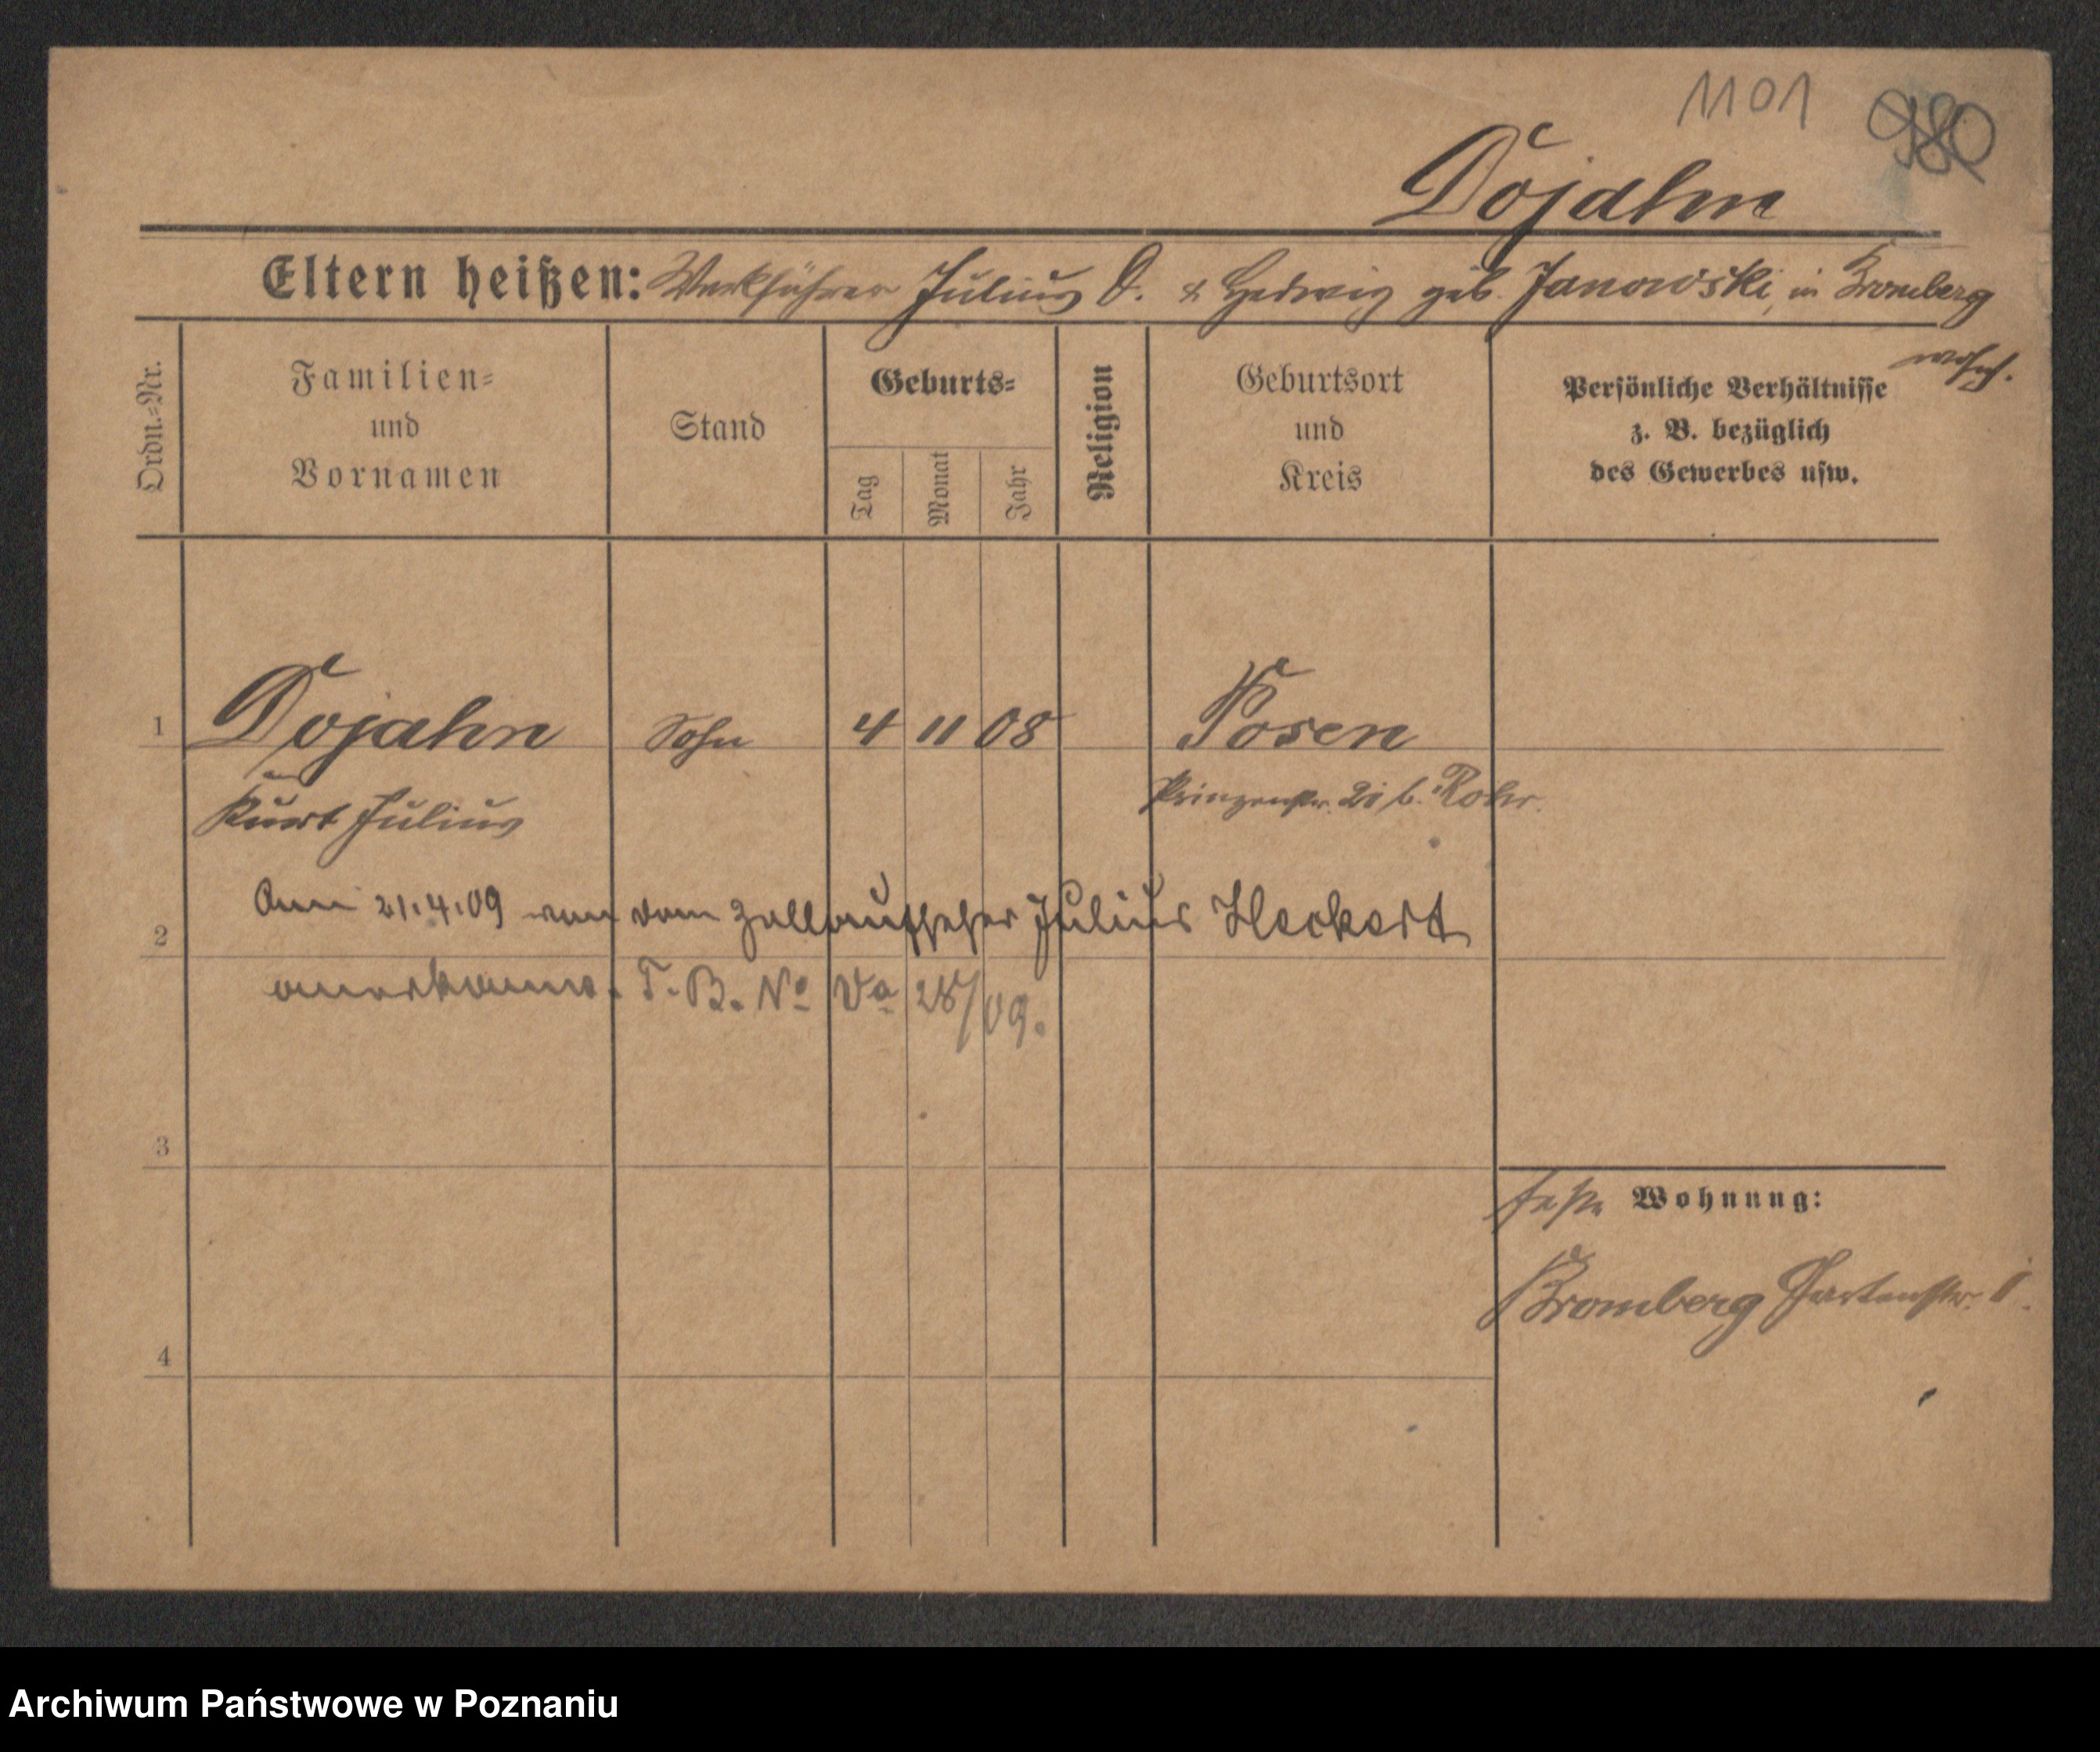 1101 980
Dojahn
Eltern heißen: Werkführer Julius D. & Hedwig geb. Janowski, in Bromberg
wohnh.
Ordn.=Nr.
Familien=
und
Vornamen
Stand
Geburts=
Tag
Monat
Jahr
Religion
Geburtsort
und
Kreis
Persönliche Verhältnisse
z. B. bezüglich
des Gewerbes usw.
1 Dojahn Sohn 4 11 08 Posen
Kurt Julius Prinzenstr. b. Rohr.
Am 21.4.09 von dem Zollaufseher Julius Heckert
2
anerkannt. T. B. No Va 28/09.
3
feste Wohnung:
Bromberg Gartenstr. 1.
4
Archiwum Państwowe w Poznaniu